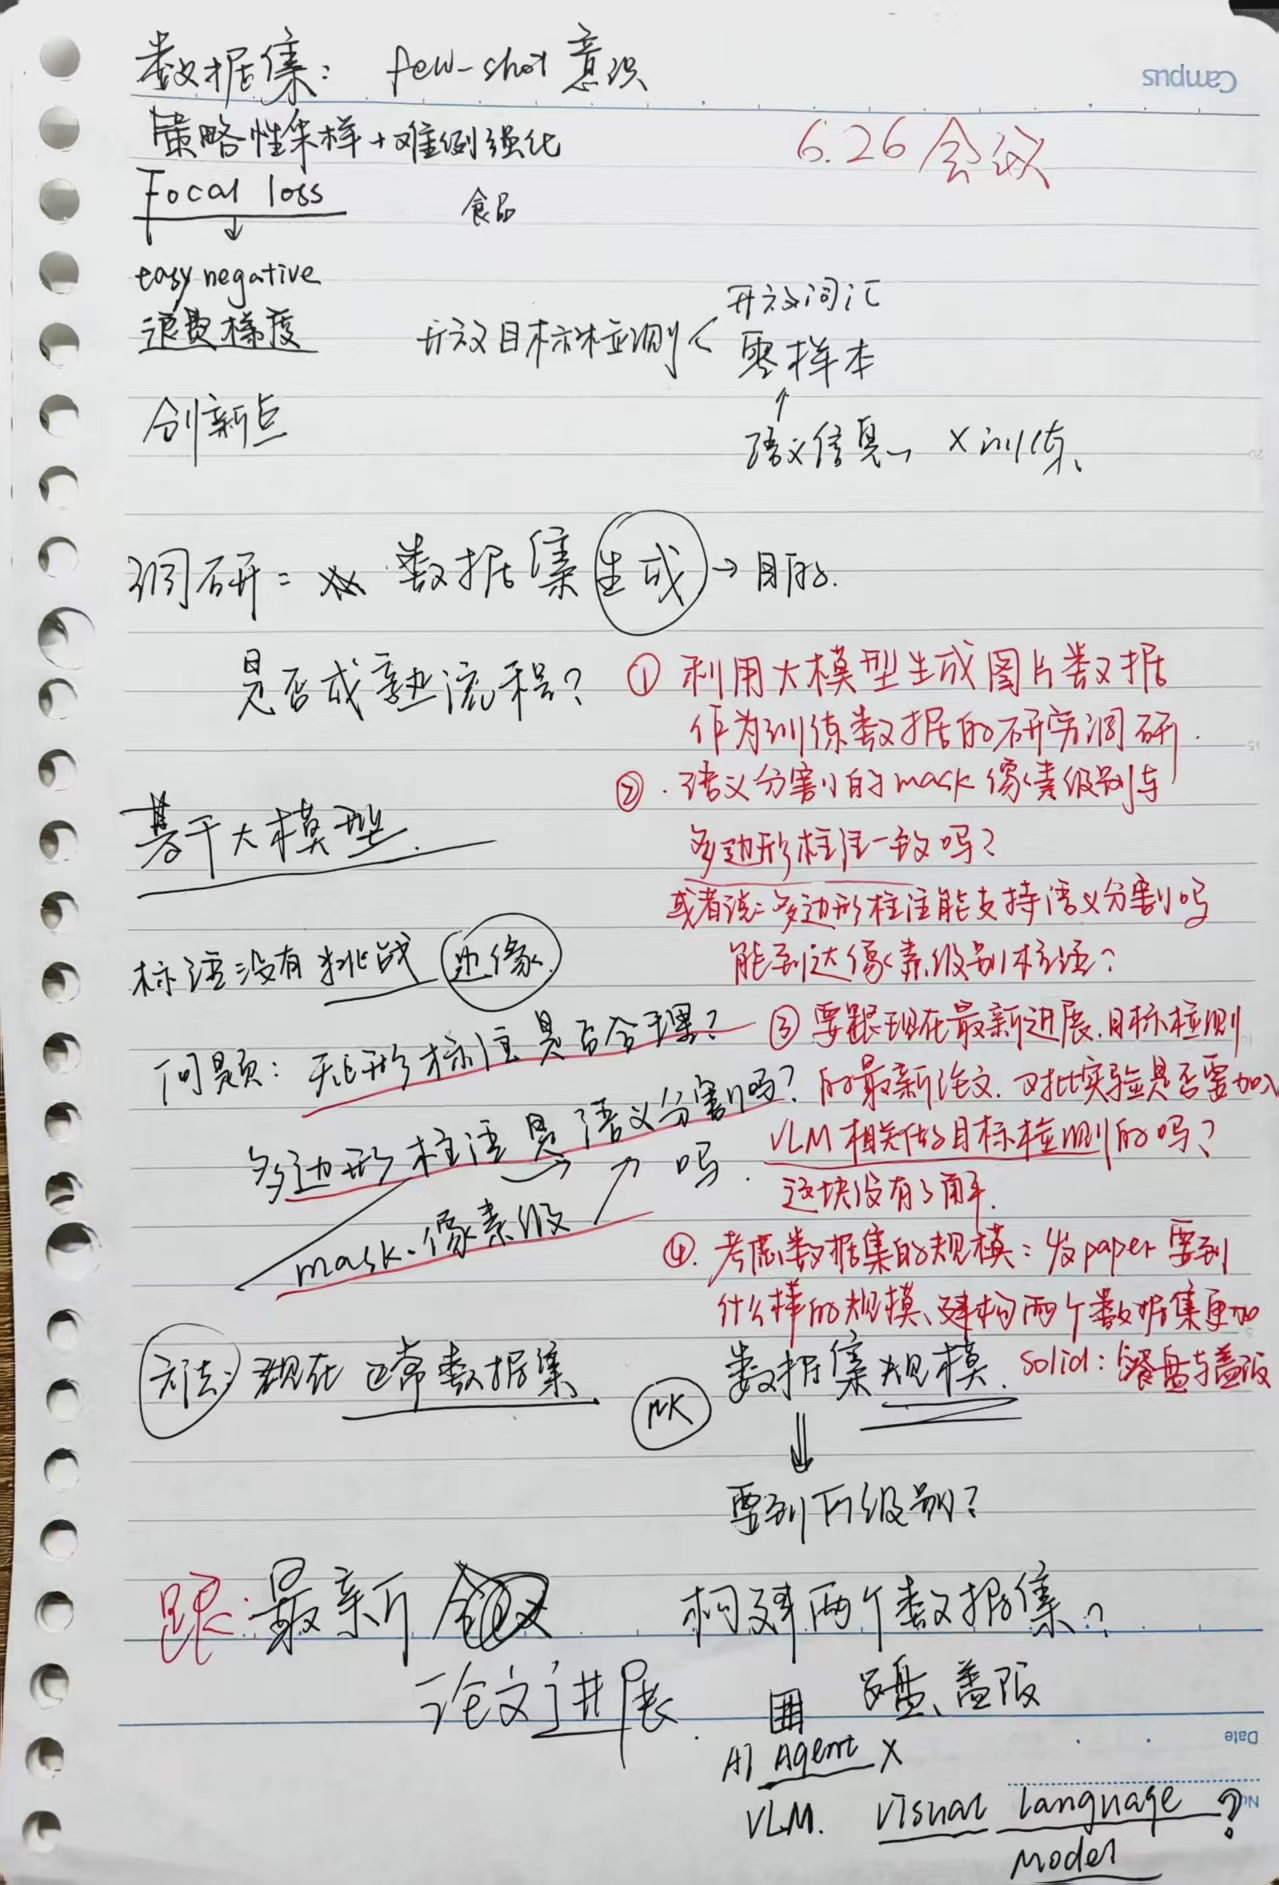 Campus
数据集: few-shot 意识
6.26 会议
策略性采样+难例强化
Focal loss
食品
easy negative
浪费梯度
开放目标检测<
开放词汇
零样本
创新点
↑
语义信息、×训练、
调研: 数据集生成→目的.
是否成熟流程?
① 利用大模型生成图片数据
作为训练数据的研究调研.
②. 语义分割的mask像素级别与
多边形标注一致吗?
或者说:多边形标注能支持语义分割吗
能到达像素级别标注?
基于大模型.
标注没有挑战 边缘
③ 要跟现在最新进展.目标检测
的最新论文.对比实验是否要加入
VLM相关做目标检测的吗?
这块没有了解.
问题: 矩形标注是否合理?
多边形标注是语义分割吗?
mask.像素级
吗.
④. 考虑数据集的规模:发paper要到
什么样的规模、建构两个数据集更加
solid:餐盘与盖饭
方法: 现在 正常数据集
数据集规模.
要到万级别?
跟:最新
论文进展.
构建两个数据集?
盘、盖饭
AI Agent ×
VLM. Visual Language ?
Model
Date
No